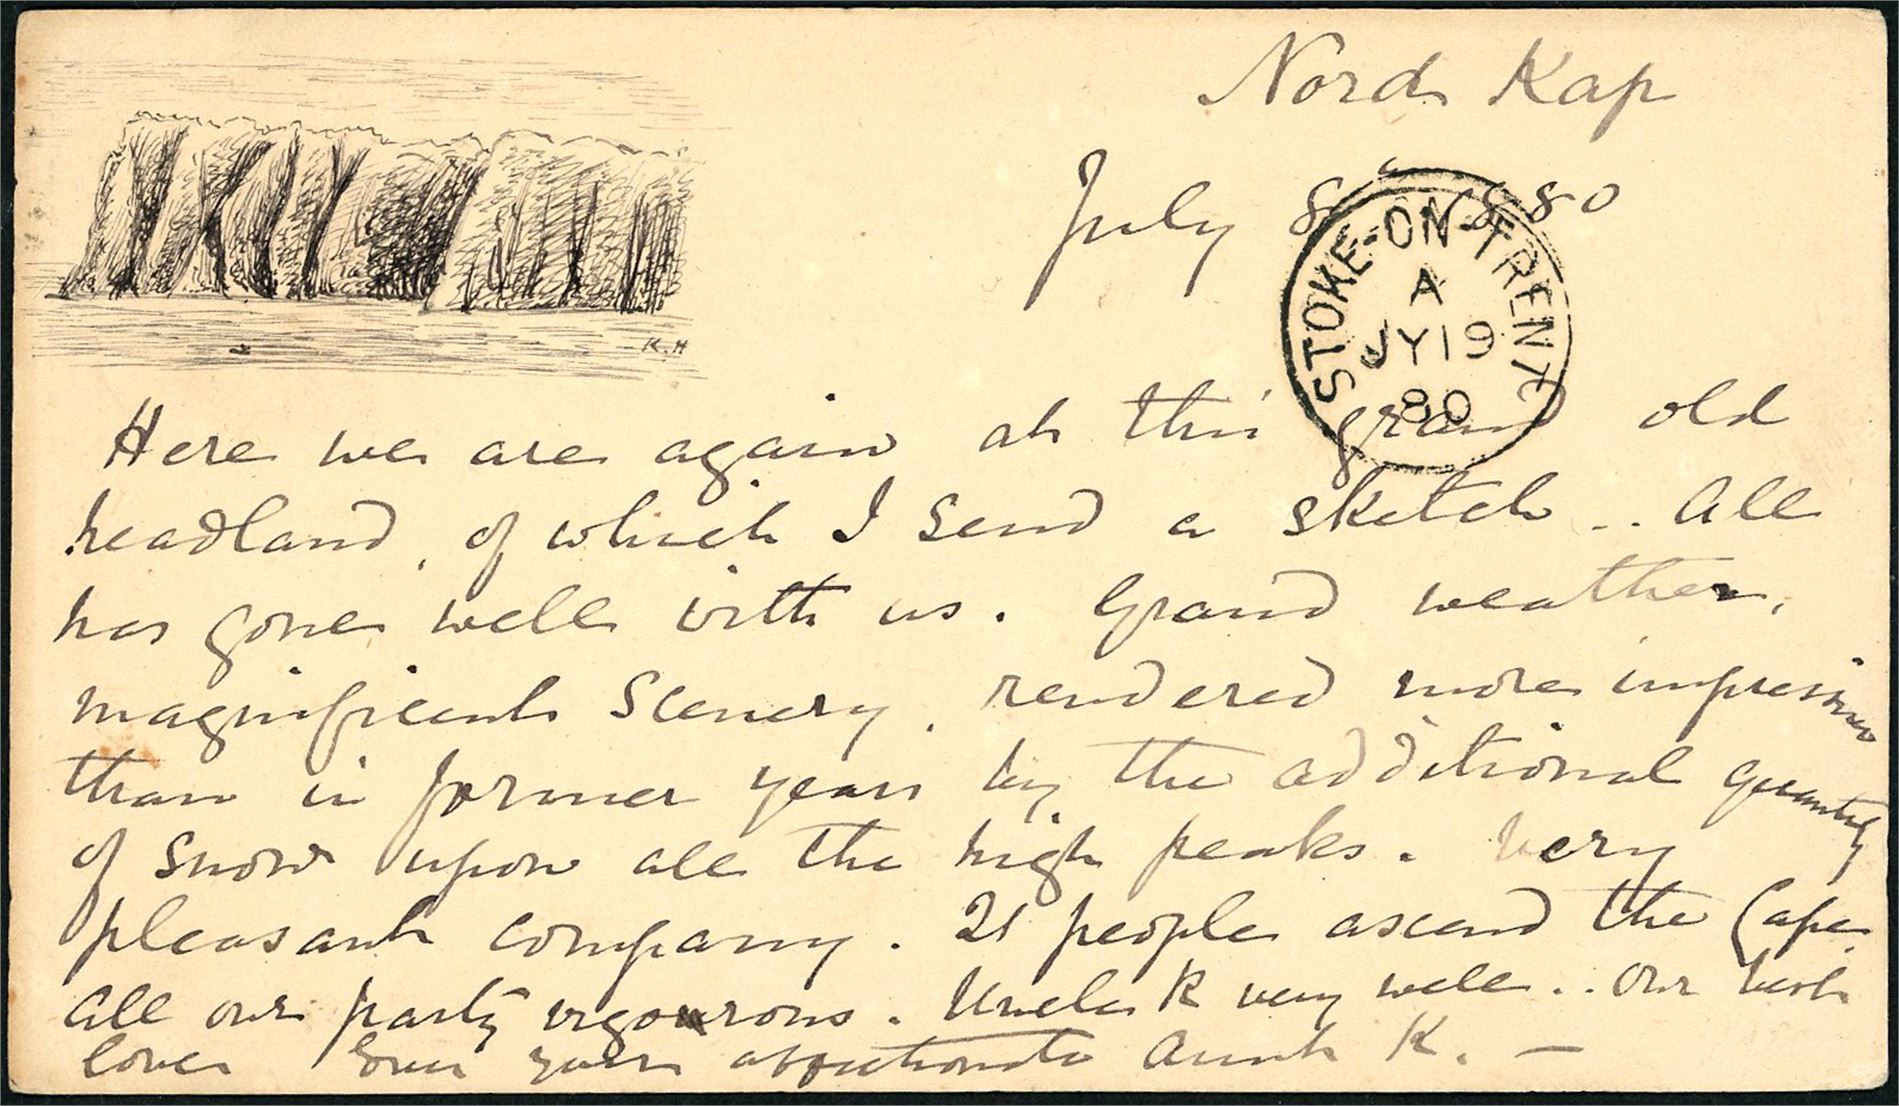 Nord Kap
July 8th 1880
STOKE-ON-TRENT
A
JY 19
80
K.H
Here we are again at this grand old
headland, of which I send a sketch .. All
has gone well with us. Grand weather,
magnificent Scenery, rendered more impressive
than in former years by the additional quantity
of snow upon all the high peaks. Very
pleasant company. 21 people ascend the Cape.
All our party vigourous. Uncle R very well .. Our best
love Ever your affectionate Aunt K. —